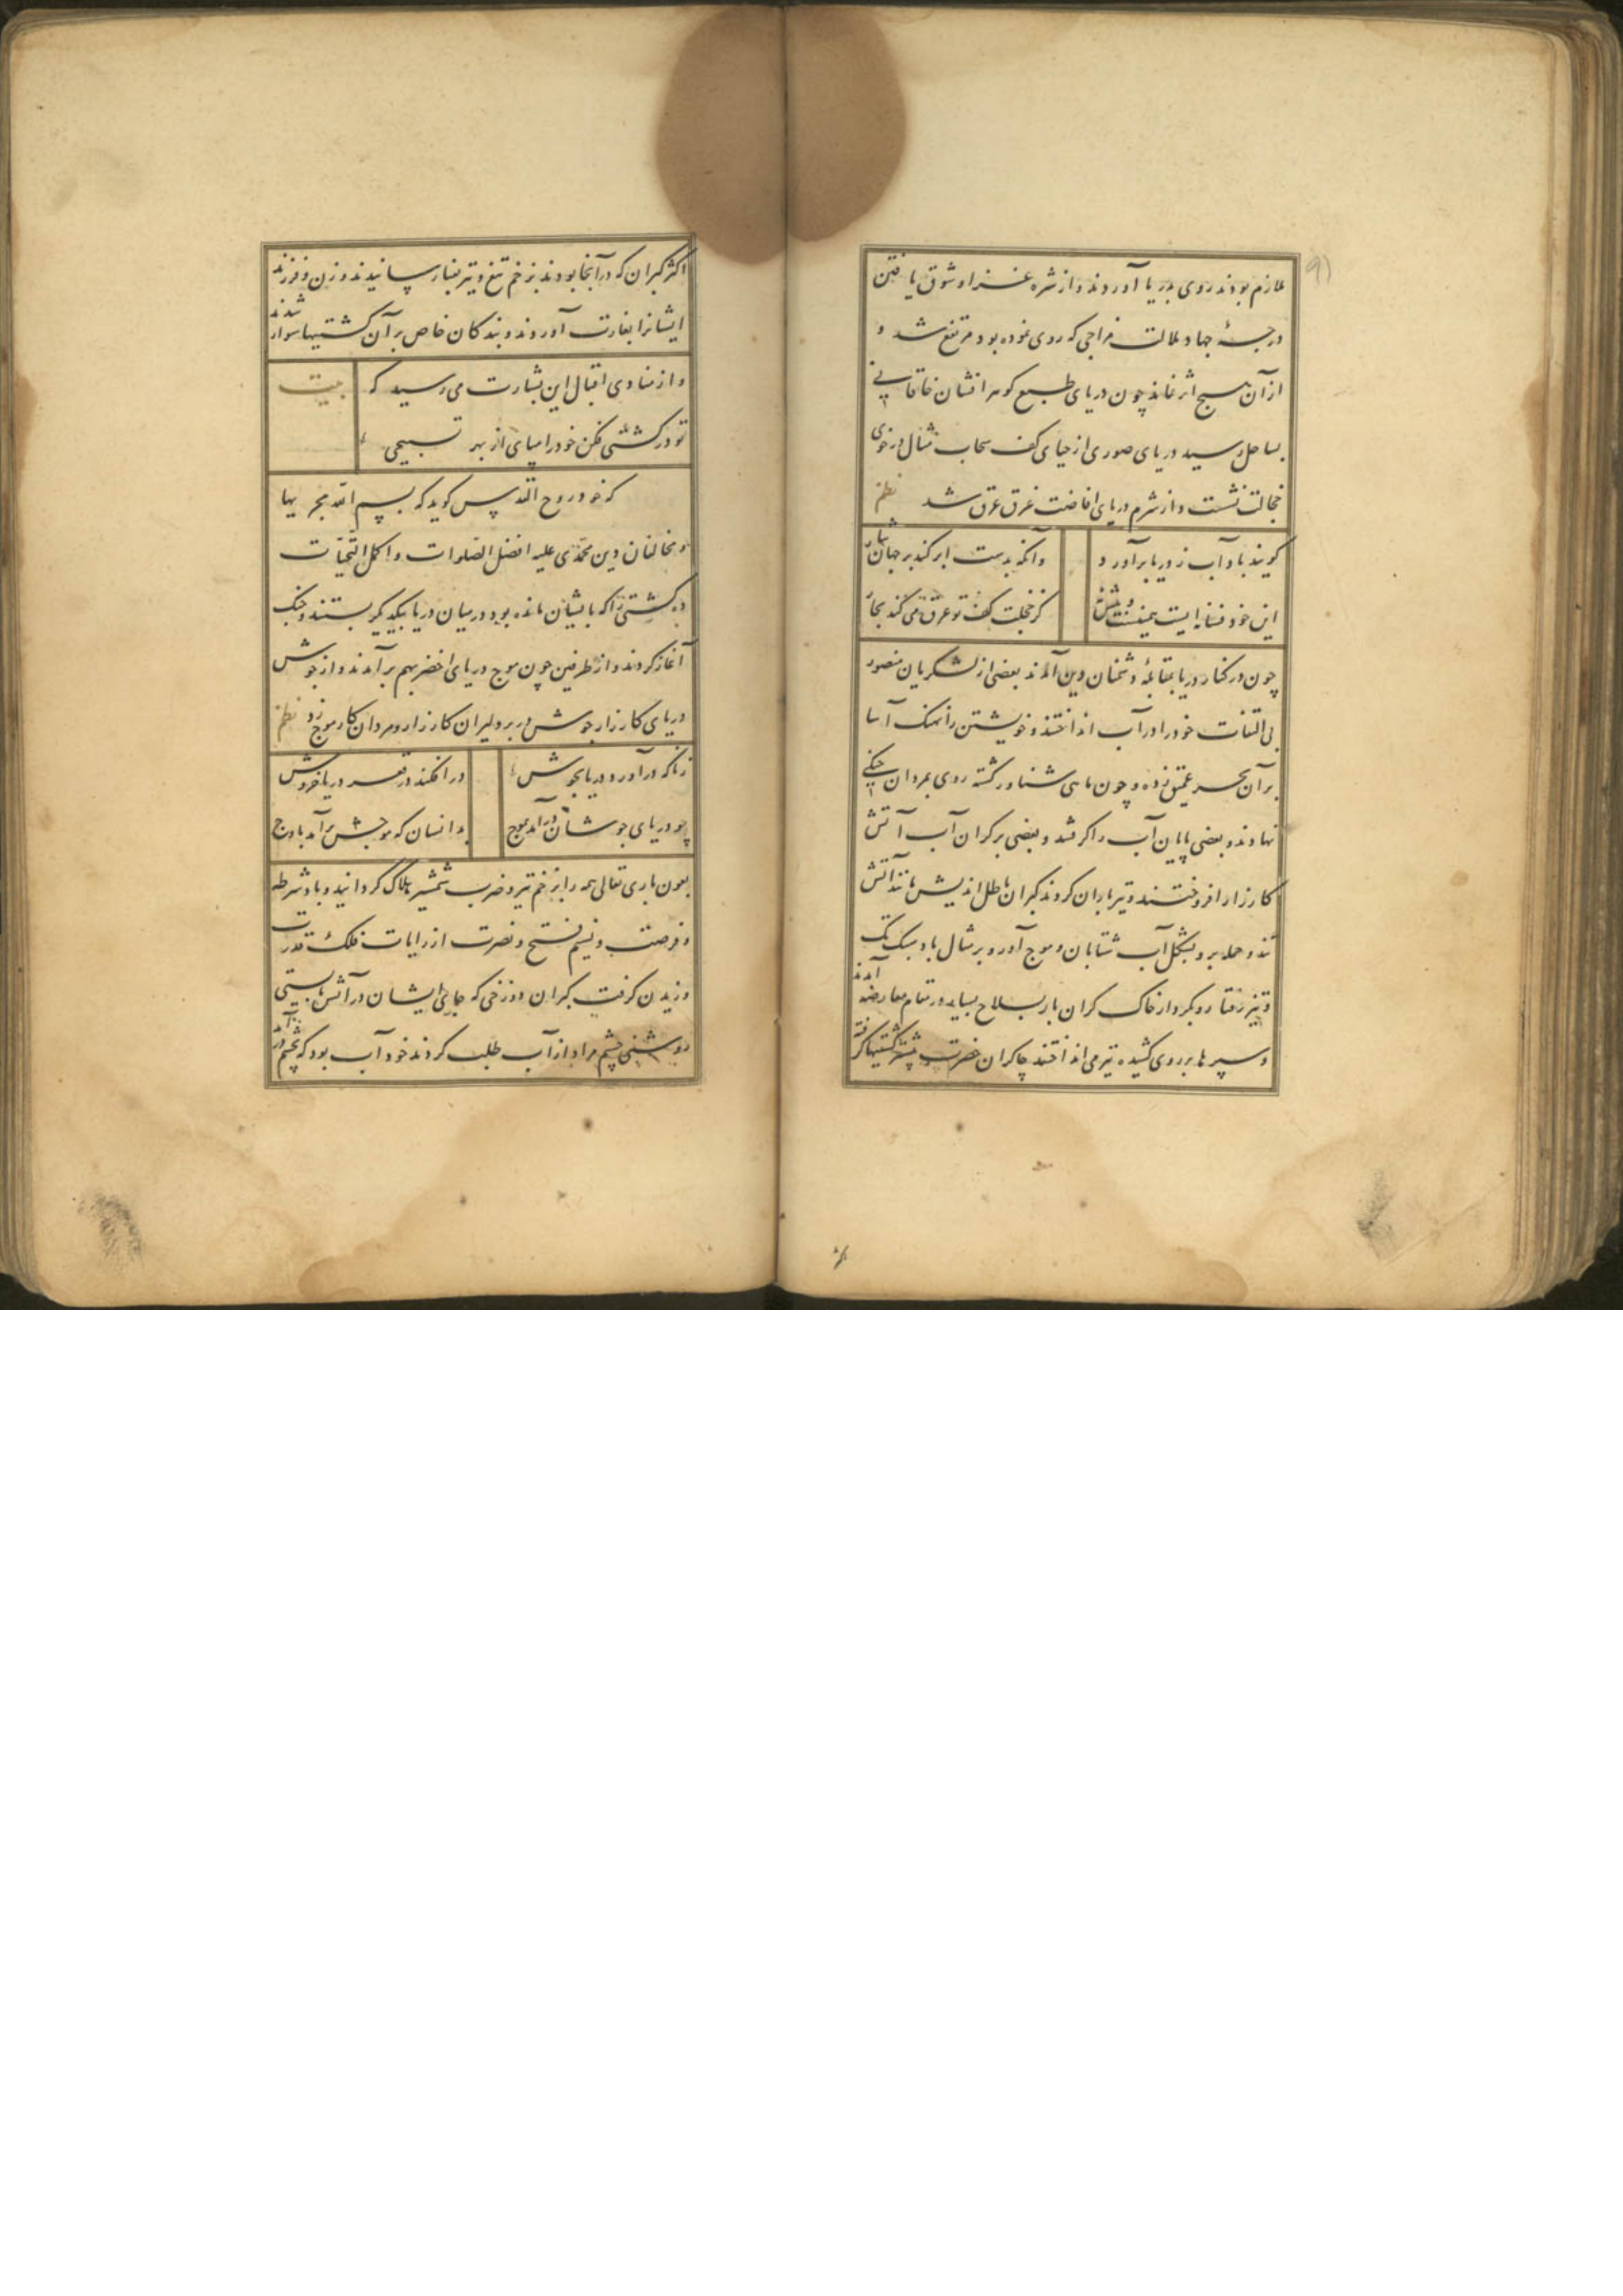 ملازم بودند روی بدریا آوردند و از شره غزا و شوق یافتن
درجهٔ جهاد ملالت مزاجی که روی نموده بود مرتفع شد و
از آن هیچ اثر نماند چون دریای طبع گوهر افشان خاقانی
بساحل رسید دریای صوری از حیای کف سحاب مثال در خوی
خجالت نشست و از شرم دریای افاضت غرق عرق شد نظم
گویند باد آب ز دریا برآورد و
وانگه بدست ابر کند بر جهان نثار
این خود فسانه ایست
کز خجلت کف تو عرق می کند بحار
چون در کنار دریا بمقابلهٔ دشمنان دین آمدند بعضی از لشکریان منصور
بی التفات خود را در آب انداختند و خویشتن را نهنگ آسا
بر آن بحر عمیق زده و چون ماهی شناور گشته روی بمردان جنگی
نهادند و بعضی پایان آب را گرفتند و بعضی بر کران آب آتش
کارزار افروختند و تیر باران کردند گبران باطل اندیش مانند آتش
تند حمله بر و بشکل آب شتابان و موج آور و بر مثال باد سبک تک
و تیز رفتار و بکردار خاک گران بار بسلاح بیامد در مقام معارضه آمدند
و سپر ها بر روی کشیده تیر می انداختند چاکران حضرت بیشتر کشتیها گرفته
اکثر گبران که در آنجا بودند بزخم تیغ و تیر بفنا رسانیدند و زن و فرزند
ایشانرا بغارت آوردند و بندکان خاص بر آن کشتیها سوار شدند
و از منادی اقبال این بشارت می رسید که بیت
تو در کشتی فکن خود را مپای از بهر تسبیحی
که خود روح القدس کوید که بسم الله مجریها
و مخالفان دین محمدی علیه افضل الصلوات و اکمل التحیات
ده کشتی را که بایشان مانده بود در میان دریا بیکدیگر بستند و جنک
آغاز کردند و از طرفین چون موج دریای اخضر بهم برآمدند و از جوش
دریای کارزار جوش در بر دلیران کارزار و مردان کار موج زد نظم
زناکه درآورد دریا بجوش
در افکند در قعر دریا خروش
چو دریای جوشان درآمد بموج
بدانسان که موجش برآمد باوج
بعون باری تعالی همه را بزخم تیر و ضرب شمشیر هلاک گردانید و باد شرطه
و فرصت و نسیم فتح و نصرت از رایات فلک قدرت
وزیدن گرفت گبران دوزخی که جای ایشان در آتش بایستی
روشنی چشم مراد از آب طلب کردند خود آب بود که بچشم در آمد